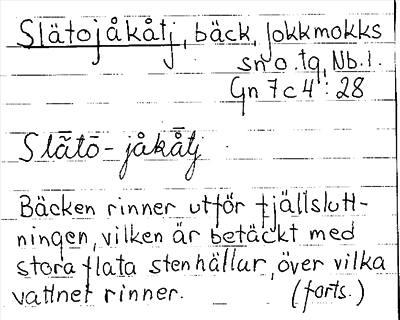 Slätojåkåtj, bäck, Jokkmokks
sn o. tg, Nb. l.
Gn 7 c 4 : 28
Slātō - jåkåtj
Bäcken rinner utför fjällslutt-
ningen, vilken är betäckt med
stora flata stenhällar, över vilka
vattnet rinner. (forts.)